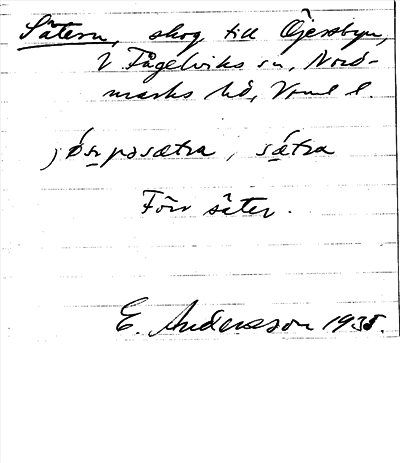 Sätern, skog till Öjersbyn,
V Fågelviks sn, Nord-
marks hd, Vrml l.
sætra
Förr säter.
E. Andersson 1938.